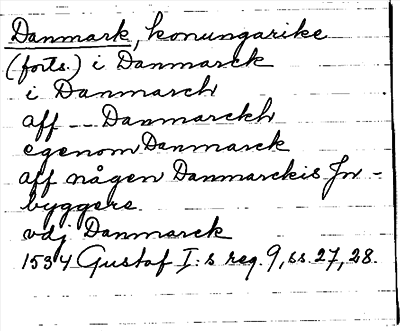 Danmark, konungarike
(forts.) i Danmarck
i Danmarch
aff -- Danmarckh
egenom Danmarck
aff någen Danmarckis In-
byggere.
vdj Danmarck
1534 Gustaf I:s reg. 9, ss. 27, 28.